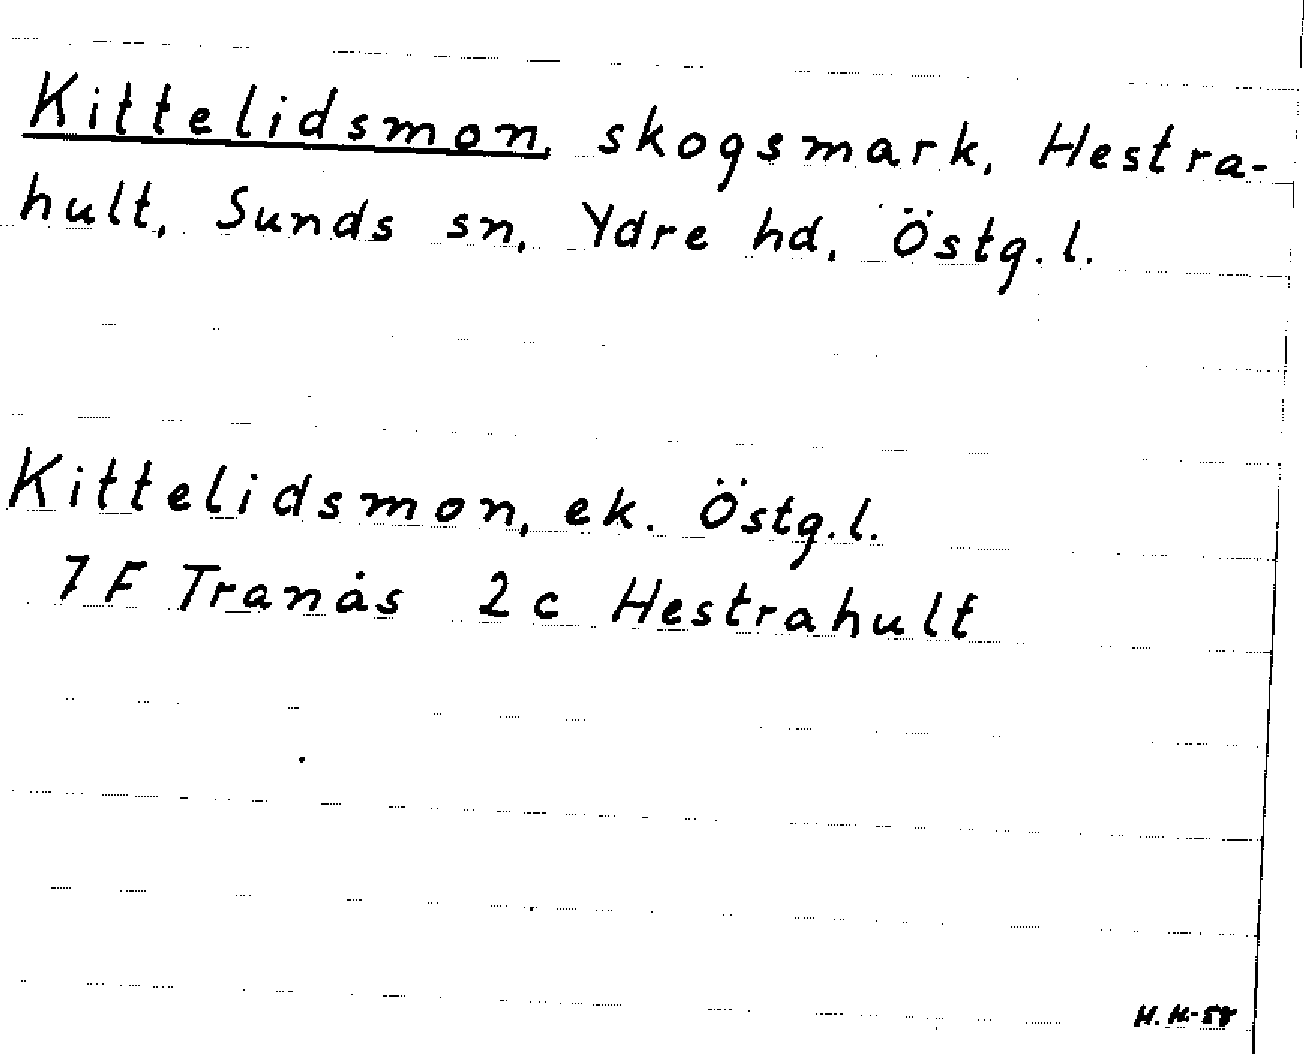 Kittelidsmon, skogsmark, Hestra-
hult, Sunds sn, Ydre hd, Östg. l.
Kittelidsmon, ek. Östg. l.
7 F Tranås 2 c Hestrahult
H. H-58